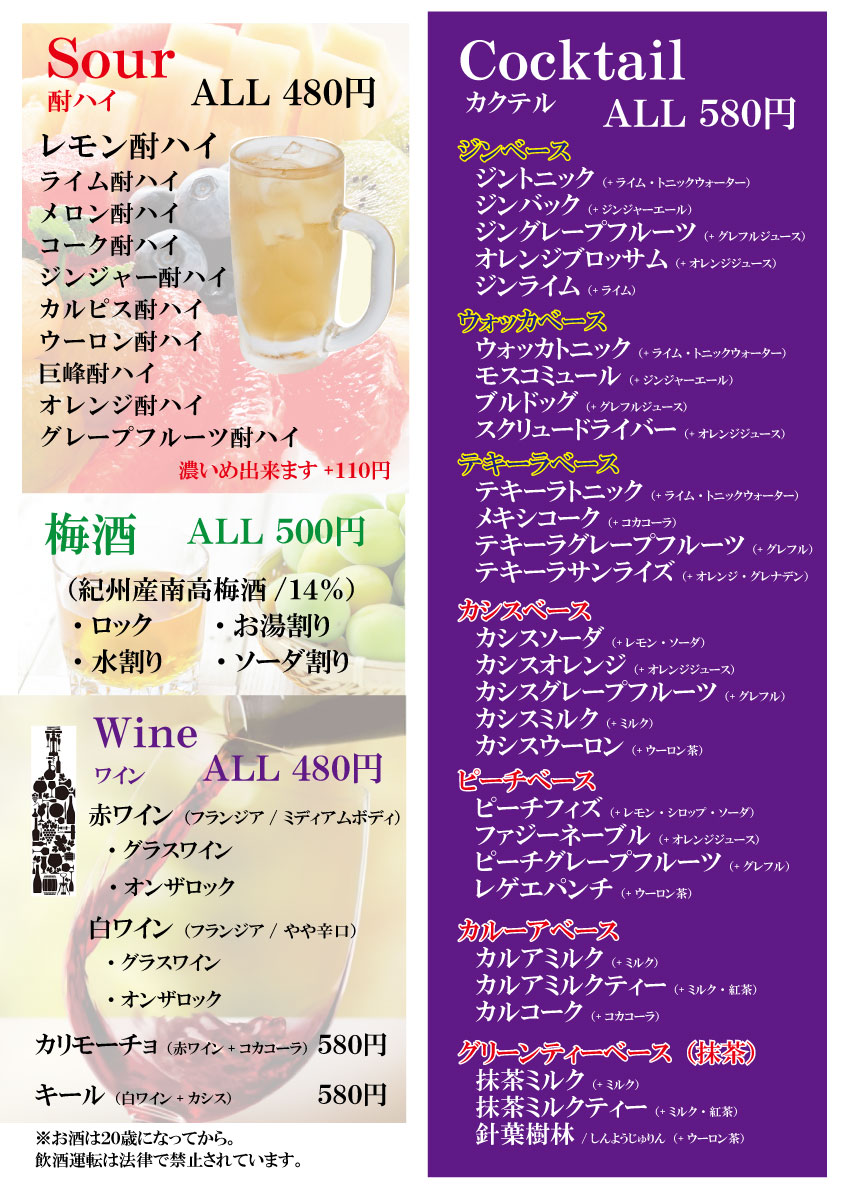 Sour
酎ハイ ALL 480円
レモン酎ハイ
ライム酎ハイ
メロン酎ハイ
コーク酎ハイ
ジンジャー酎ハイ
カルピス酎ハイ
ウーロン酎ハイ
巨峰酎ハイ
オレンジ酎ハイ
グレープフルーツ酎ハイ
濃いめ出来ます +110円
梅酒 ALL 500円
（紀州産南高梅酒 /14%）
・ロック ・お湯割り
・水割り ・ソーダ割り
Wine
ワイン ALL 480円
赤ワイン（フランジア / ミディアムボディ）
・グラスワイン
・オンザロック
白ワイン（フランジア / やや辛口）
・グラスワイン
・オンザロック
カリモーチョ（赤ワイン + コカコーラ） 580円
キール（白ワイン + カシス） 580円
※お酒は20歳になってから。
飲酒運転は法律で禁止されています。
Cocktail
カクテル ALL 580円
ジンベース
ジントニック（+ ライム・トニックウォーター）
ジンバック（+ ジンジャーエール）
ジングレープフルーツ（+ グレフルジュース）
オレンジブロッサム（+ オレンジジュース）
ジンライム（+ ライム）
ウォッカベース
ウォッカトニック（+ ライム・トニックウォーター）
モスコミュール（+ ジンジャーエール）
ブルドッグ（+ グレフルジュース）
スクリュードライバー（+ オレンジジュース）
テキーラベース
テキーラトニック（+ ライム・トニックウォーター）
メキシコーク（+ コカコーラ）
テキーラグレープフルーツ（+ グレフル）
テキーラサンライズ（+ オレンジ・グレナデン）
カシスベース
カシスソーダ（+ レモン・ソーダ）
カシスオレンジ（+ オレンジジュース）
カシスグレープフルーツ（+ グレフル）
カシスミルク（+ ミルク）
カシスウーロン（+ ウーロン茶）
ピーチベース
ピーチフィズ（+ レモン・シロップ・ソーダ）
ファジーネーブル（+ オレンジジュース）
ピーチグレープフルーツ（+ グレフル）
レゲエパンチ（+ ウーロン茶）
カルーアベース
カルアミルク（+ ミルク）
カルアミルクティー（+ ミルク・紅茶）
カルコーク（+ コカコーラ）
グリーンティーベース（抹茶）
抹茶ミルク（+ ミルク）
抹茶ミルクティー（+ ミルク・紅茶）
針葉樹林 / しんようじゅりん（+ ウーロン茶）